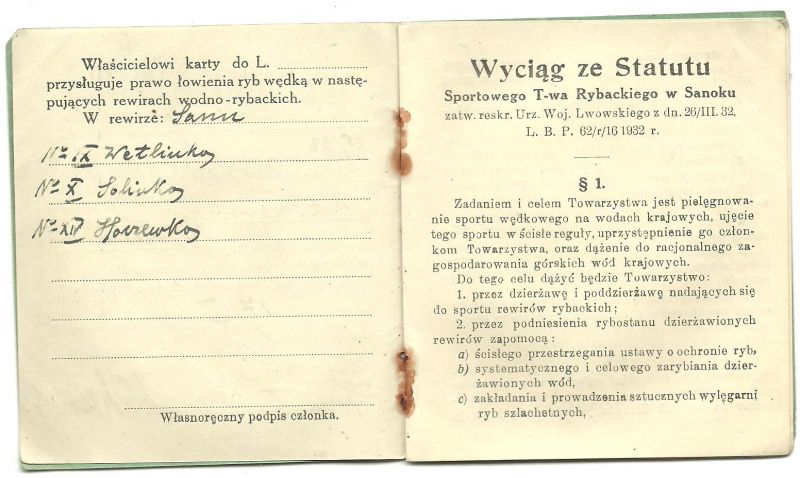 Właścicielowi karty do L.
przysługuje prawo łowienia ryb wędką w nastę-
pujących rewirach wodno-rybackich.
W rewirze: Sanu
No IX Wetlinka
No X Solinka
No XIV Hoczewka
Własnoręczny podpis członka.
Wyciąg ze Statutu
Sportowego T-wa Rybackiego w Sanoku
zatw. reskr. Urz. Woj. Lwowskiego z dn. 26/III. 32.
L. B. P. 62/r/16 1932 r.
§ 1.
Zadaniem i celem Towarzystwa jest pielęgnowa-
nie sportu wędkowego na wodach krajowych, ujęcie
tego sportu w ścisłe reguły, uprzystępnienie go człon-
kom Towarzystwa, oraz dążenie do racjonalnego za-
gospodarowania górskich wód krajowych.
Do tego celu dążyć będzie Towarzystwo:
1. przez dzierżawę i poddzierżawę nadających się
do sportu rewirów rybackich;
2. przez podniesienia rybostanu dzierżawionych
rewirów zapomocą:
a) ścisłego przestrzegania ustawy o ochronie ryb,
b) systematycznego i celowego zarybiania dzier-
żawionych wód,
c) zakładania i prowadzenia sztucznych wylęgarni
ryb szlachetnych,